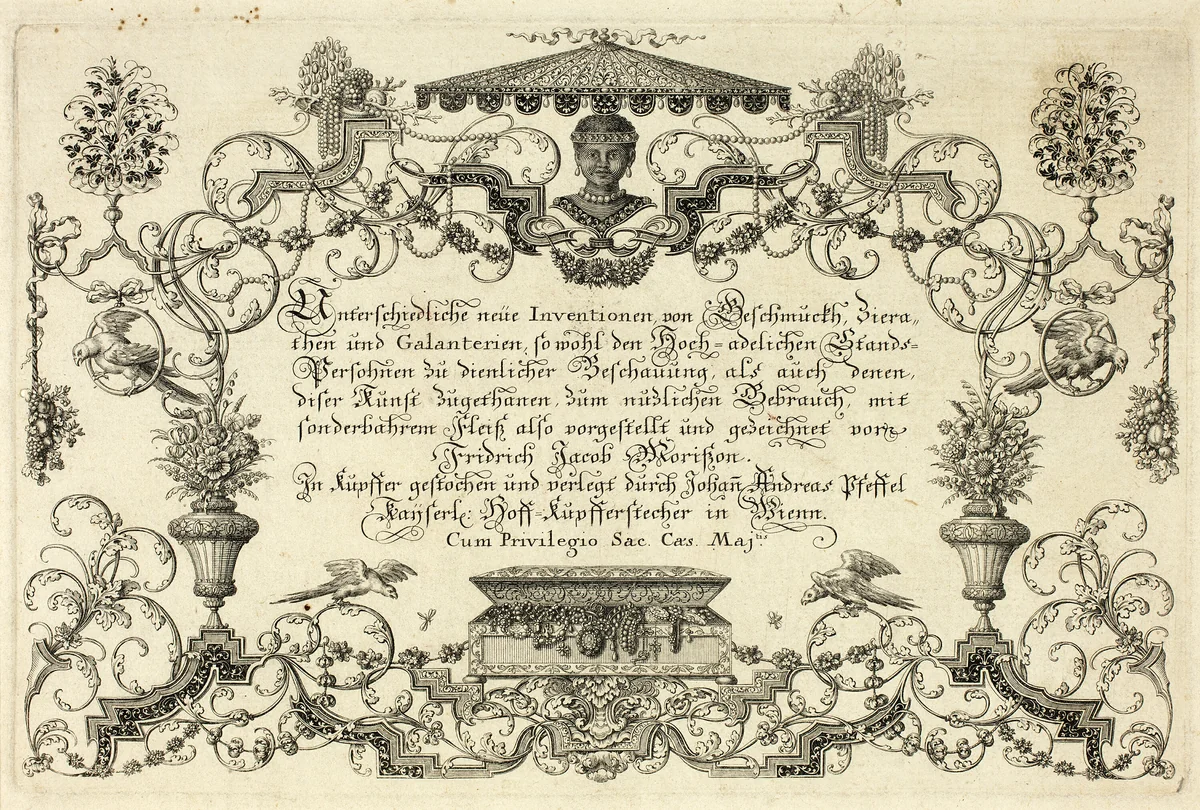 Unterschiedliche neüe Inventionen von Geschmuckh, Ziera„
then und Galanterien, so wohl den Hoch=adelichen Stands=
Persohnen zu dienlicher Beschauung, als auch denen,
diser Kunst zugethanen, zum nuzlichen Gebrauch, mit
sonderbahrem Fleiß also vorgestellt und gezeichnet von
Fridrich Jacob Morißon.
In Kupffer gestochen und verlegt durch Johañ Andreas Pfeffel
Kayserl: Hoff=Kupfferstecher in Wienn.
Cum Privilegio Sac. Cæs. Maj:tis